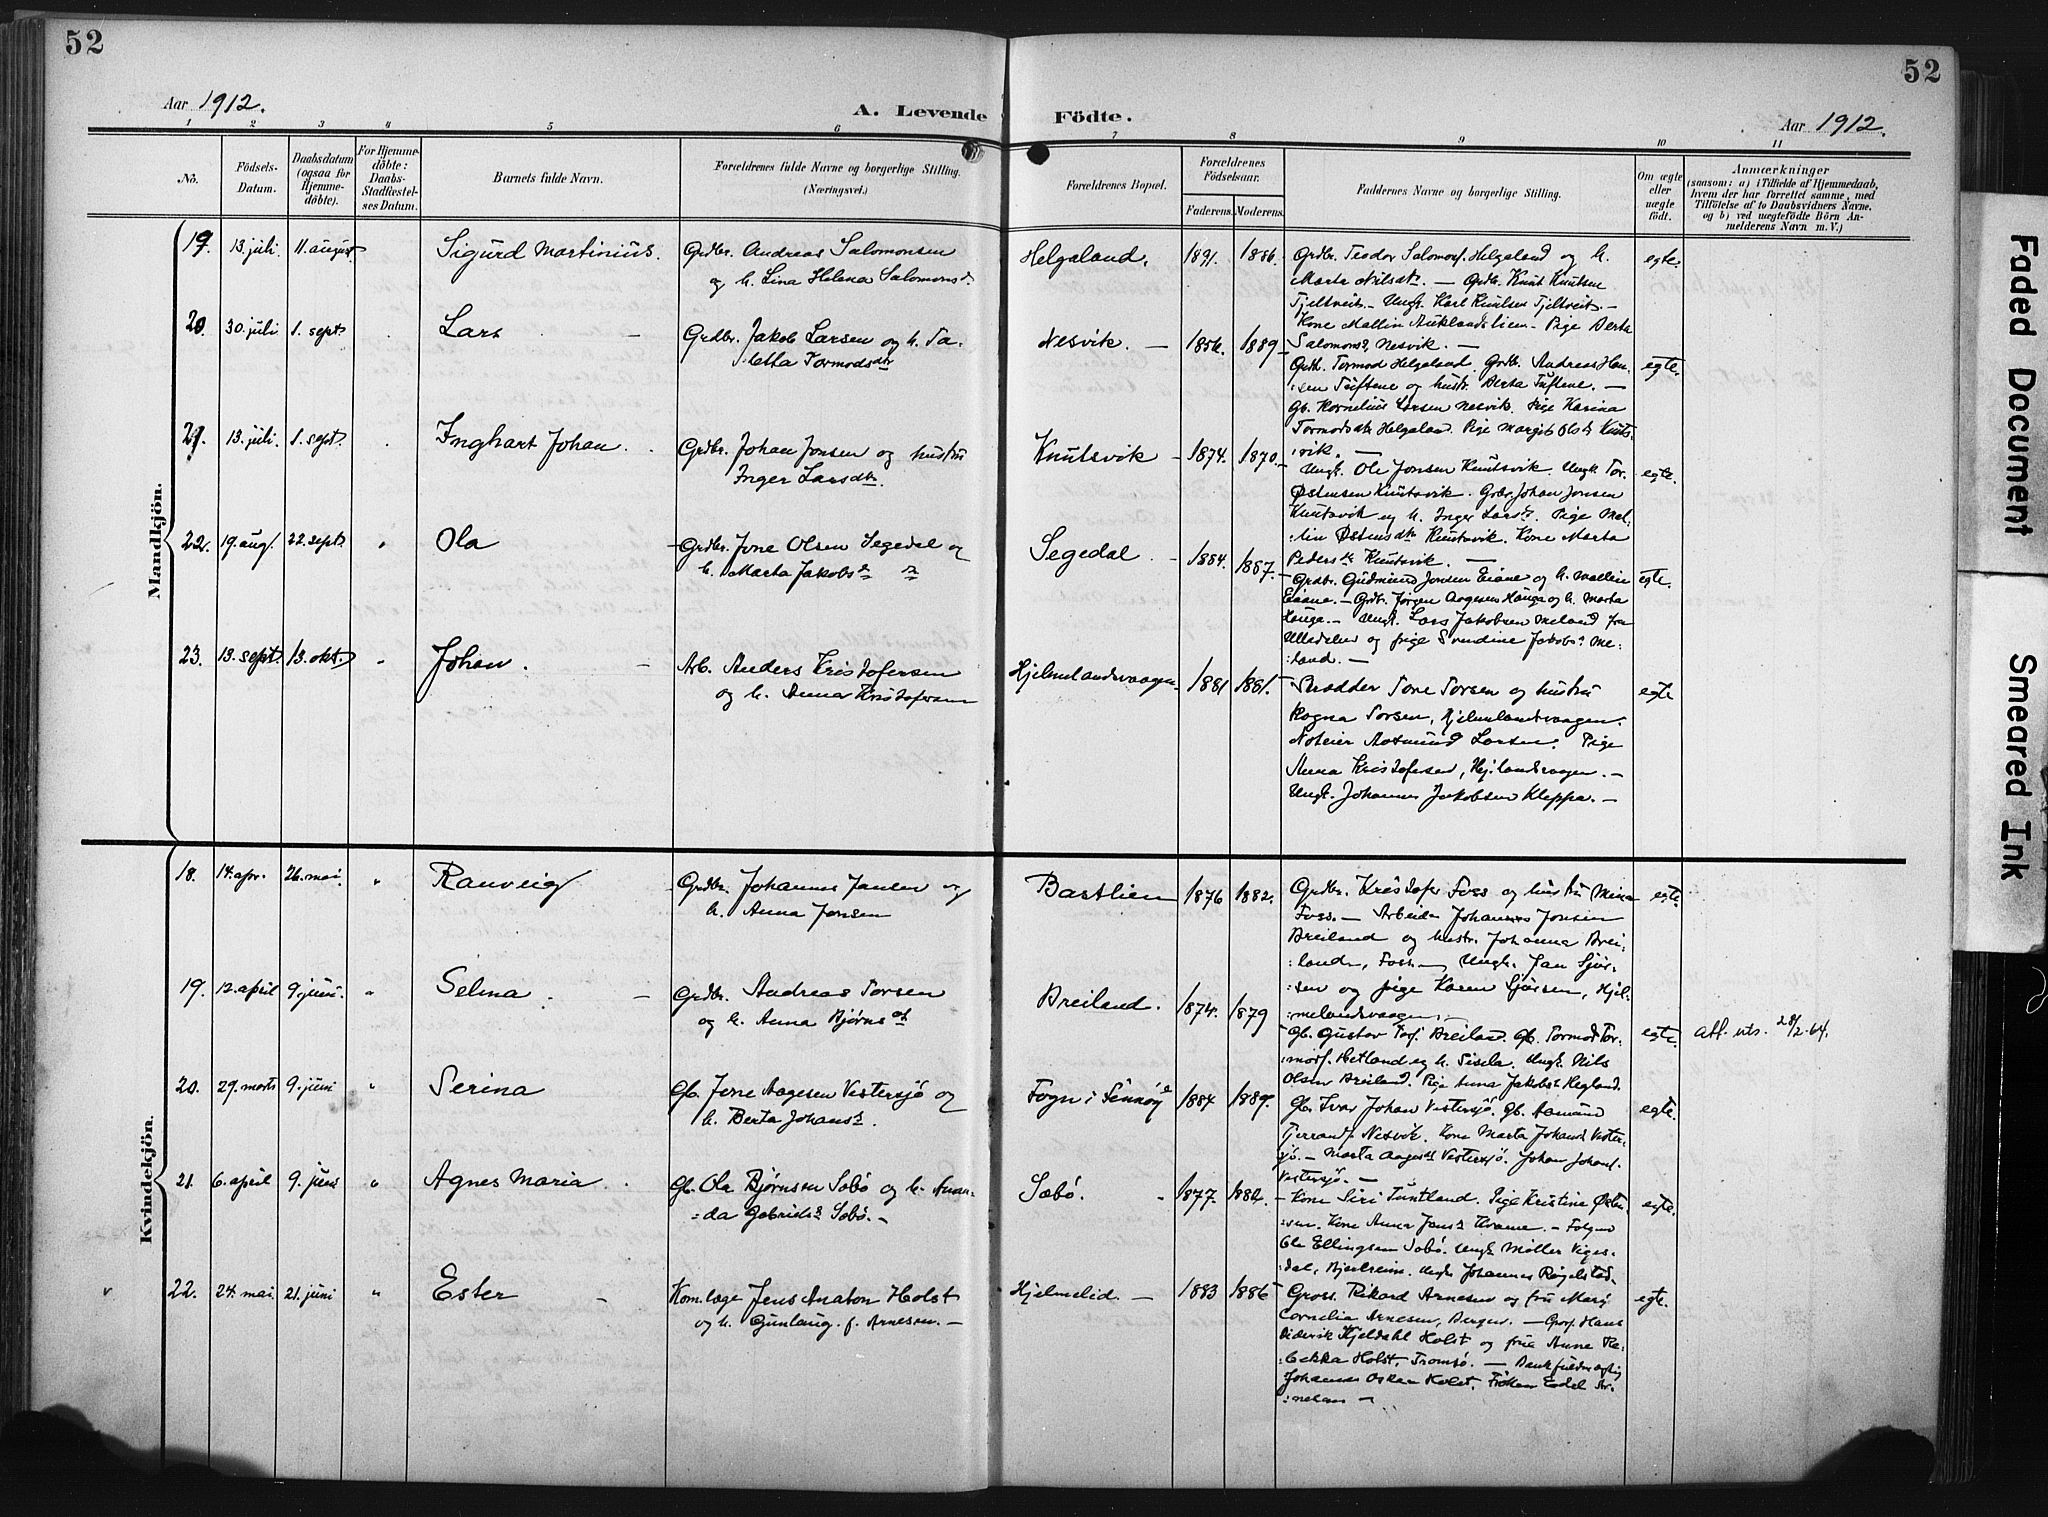 52
52
Aar 1912.
A. Levende Födte.
Aar 1912.
1 2 3 4 5 6 7 8 9 10 11
No.
Födsels-Datum.
Daabsdatum (ogsaa for Hjemme-döbte).
For Hjemme-döbte: Daabs-Stadfæstel-ses Datum.
Barnets fulde Navn.
Forældrenes fulde Navne og borgerlige Stilling. (Næringsvei.)
Forældrenes Bopæl.
Forældrenes Födselsaar.
Faderens. Moderens.
Faddernes Navne og borgerlige Stilling.
Om ægte eller uægte födt.
Anmærkninger
(saasom: a) i Tilfælde af Hjemmedaab,
hvem der har forrettet samme, med
Tilföielse af to Daabsvidners Navne,
og b) ved uægtefödte Börn An-
melderens Navn m. V.)
Mandkjön.
19. 13. juli 11. august Sigurd Martinius. Grdbr. Andreas Salomonsen
og h. Lina Helena Salomonsd.
Helgaland. 1891. 1886. Grdbr. Teodor Salomons. Helgaland og h. egte.
Marta Nilsdtr. — Grdbr. Knut Knutsen
Tjeltveit. — Ungk. Karl Knutsen Tjeltveit —
Kone Mallin Auklandslien — Pige Berta
Salomonsd. Nesvik. —
20. 30. juli 1. sept. Lars — Grdbr. Jakob Larsen og h. Ta-
letta Tormodsdtr
Nesvik. — 1856. 1889. Grdb. Tormod Helgaland. Grdbr. Andreas Han- egte.
sen Tuftene og hustr. Berta Tuftene. —
Gb. Kornelius Larsen Nesvik. Pige Karina
Tormodsdtr Helgaland. Pige Margit Olsd. Knuts-
vik. —
21. 13. juli. 1. sept. Inghart Johan. Grdbr. Johan Jonsen og hustru
Inger Larsdtr.
Knutsvik 1874. 1870. Ungk. Ole Jonsen Knutsvik. Ungk. Tor. egte.
Østensen Knutsvik. Grdbr. Johan Jonsen
Knutsvik og h. Inger Larsd. Pige Mal-
lin Østensdtr Knutsvik. Kone Marta
Pedersdtr Knutsvik. —
22. 19. aug. 22. sept. " Ola Grdbr. Jone Olsen Segedal og
h. Marta Jakobsd.
Segedal 1884. 1887. Grdbr. Gudmund Jonsen Eiane og h. Mallin egte.
Eiane. — Grdbr. Jørgen Aagesen Hauga og h. Marta
Hauga. — Ungk. Lars Jakobsen Meland fra
Ulladalen og pige Svendine Jakobsd. Me-
land. —
23. 13. sept. 13. okt. " Johan. — Arb. Anders Kristofersen
og h. Anna Kristofersen
Hjelmelandsvaagen 1881 1881. Skrædder Tore Torsen og hustru egte
Ragna Torsen, Hjelmelandsvaagen.
Noteier Aasmund Larsen. Pige
Anna Kristofersen, Hj.landsvaagen. —
Ungk. Johannes Jakobsen Kleppa. —
Kvindekjön.
18. 14. apr. 26. mai. " Ranveig Grdbr. Johannes Jansen og
h. Anna Jonsen
Bastlien 1876 1882. Grdbr. Kristofer Foss og hustru Mina egte.
Foss. — Arbeider Johannes Jonsen
Breiland og hustr. Johanna Brei-
land, Foss. — Ungk. Jan Sjur-
sen og pige Karen Sjursen, Hjel-
melandsvaagen. —
19. 12. april 9. juni. " Selma. — Grdbr. Andreas Torsen
og h. Anna Bjørnsdt.
Breiland. 1874. 1879 Gb. Gustav Torj. Breiland. Gb. Tormod Tor- egte. att. uts. 28/2.64.
mods. Hetland og h. Sisela. Ungk. Nils
Olsen Breiland. Pige Anna Jakobsd. Hegland.
20. 29. marts 9. juni " Serina Gb. Jone Aagesen Vestersjø og
h. Berta Johansd.
Fogn i Finnøy 1884 1889. Gb. Ivar Johan Vestersjø. Gb. Aamund egte.
Tjerrands. Nesvik. Kone Marta Johansd. Vester-
sjø. — Marta Aagesd. Vestersjø. Johan Johans.
Vestersjø. —
21. 6. april 9. juni " Agnes Maria Gb. Ola Bjørnsen Sæbø og h. Aman-
da Gabrielsd. Sæbø. —
Sæbø. 1877. 1884. Kone Siri Tuntland. Pige Kristine Østen- egte.
sen. Kone Anna Jansd. Kvame. — Følger
Ole Ellingsen Sæbø. Ungk. Møller Viges-
dal, Bjerkreim. Ungk. Johannes Røgelstad.
22. 24. mai. 21. juni " Ester — Kom. læge Jens Anaton Holst
og h. Gunlaug f. Arnesen. —
Hjelmelid. — 1883 1886 Gross. Rikard Arnesen og fru Mary egte.
Cornelia Arnesen, Bergen. — Gros. Hans
Diderik Kjeldahl Holst og frue Anne Re-
bekka Holst, Tromsø. — Bankfuldmægtig
Johannes Oskar Holst. Frøken Edel Ar-
nesen —
Faded Document
Smeared Ink